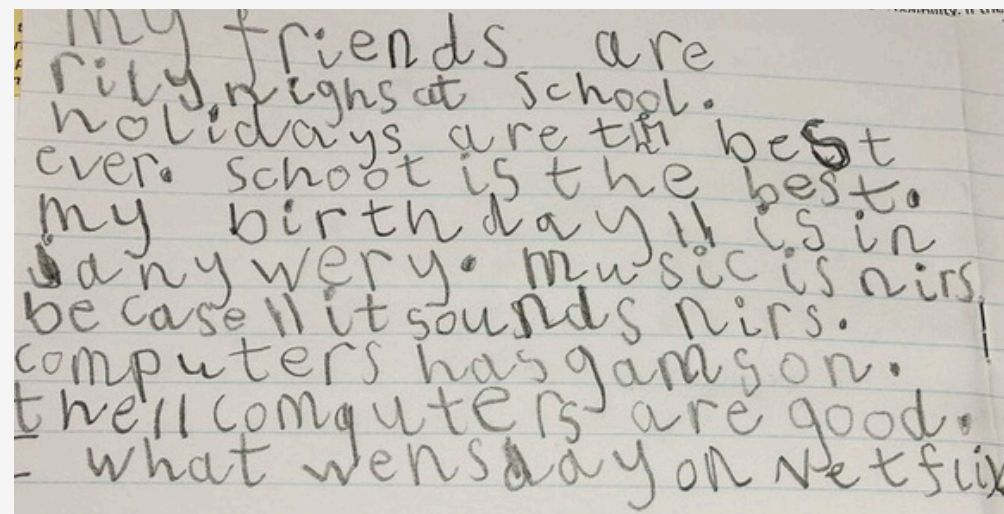 my friends are
rily nighs at school.
holidays are the best
ever. school is the best.
my birthday || is in
janywery. music is nirs
be case || it sounds nirs.
computers has gams on.
the || comquters are good.
I what wensday on Netflix